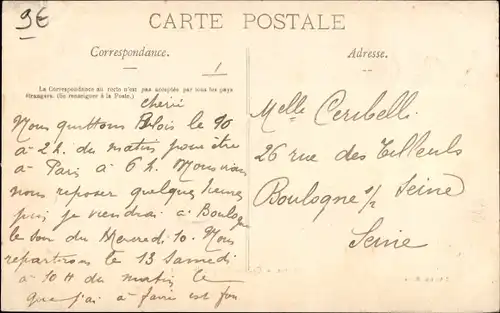 9€
CARTE POSTALE
Correspondance.
Adresse.
1
La Correspondance au recto n'est pas acceptée par tous les pays
étrangers. (Se renseigner à la Poste.)
cherie
Nous quittons Blois le 10
à 2h. du matin pour être
à Paris à 6h. Nous
nous reposer quelques heures
puis je viendrai à Boulogne
le soir du Mercredi 10. Nous
repartirons le 13 Samedi
à 10H du matin le
que j'ai à faire est
Melle Ceribelli
26 rue des Tilleuls
Boulogne s/ Seine
Seine